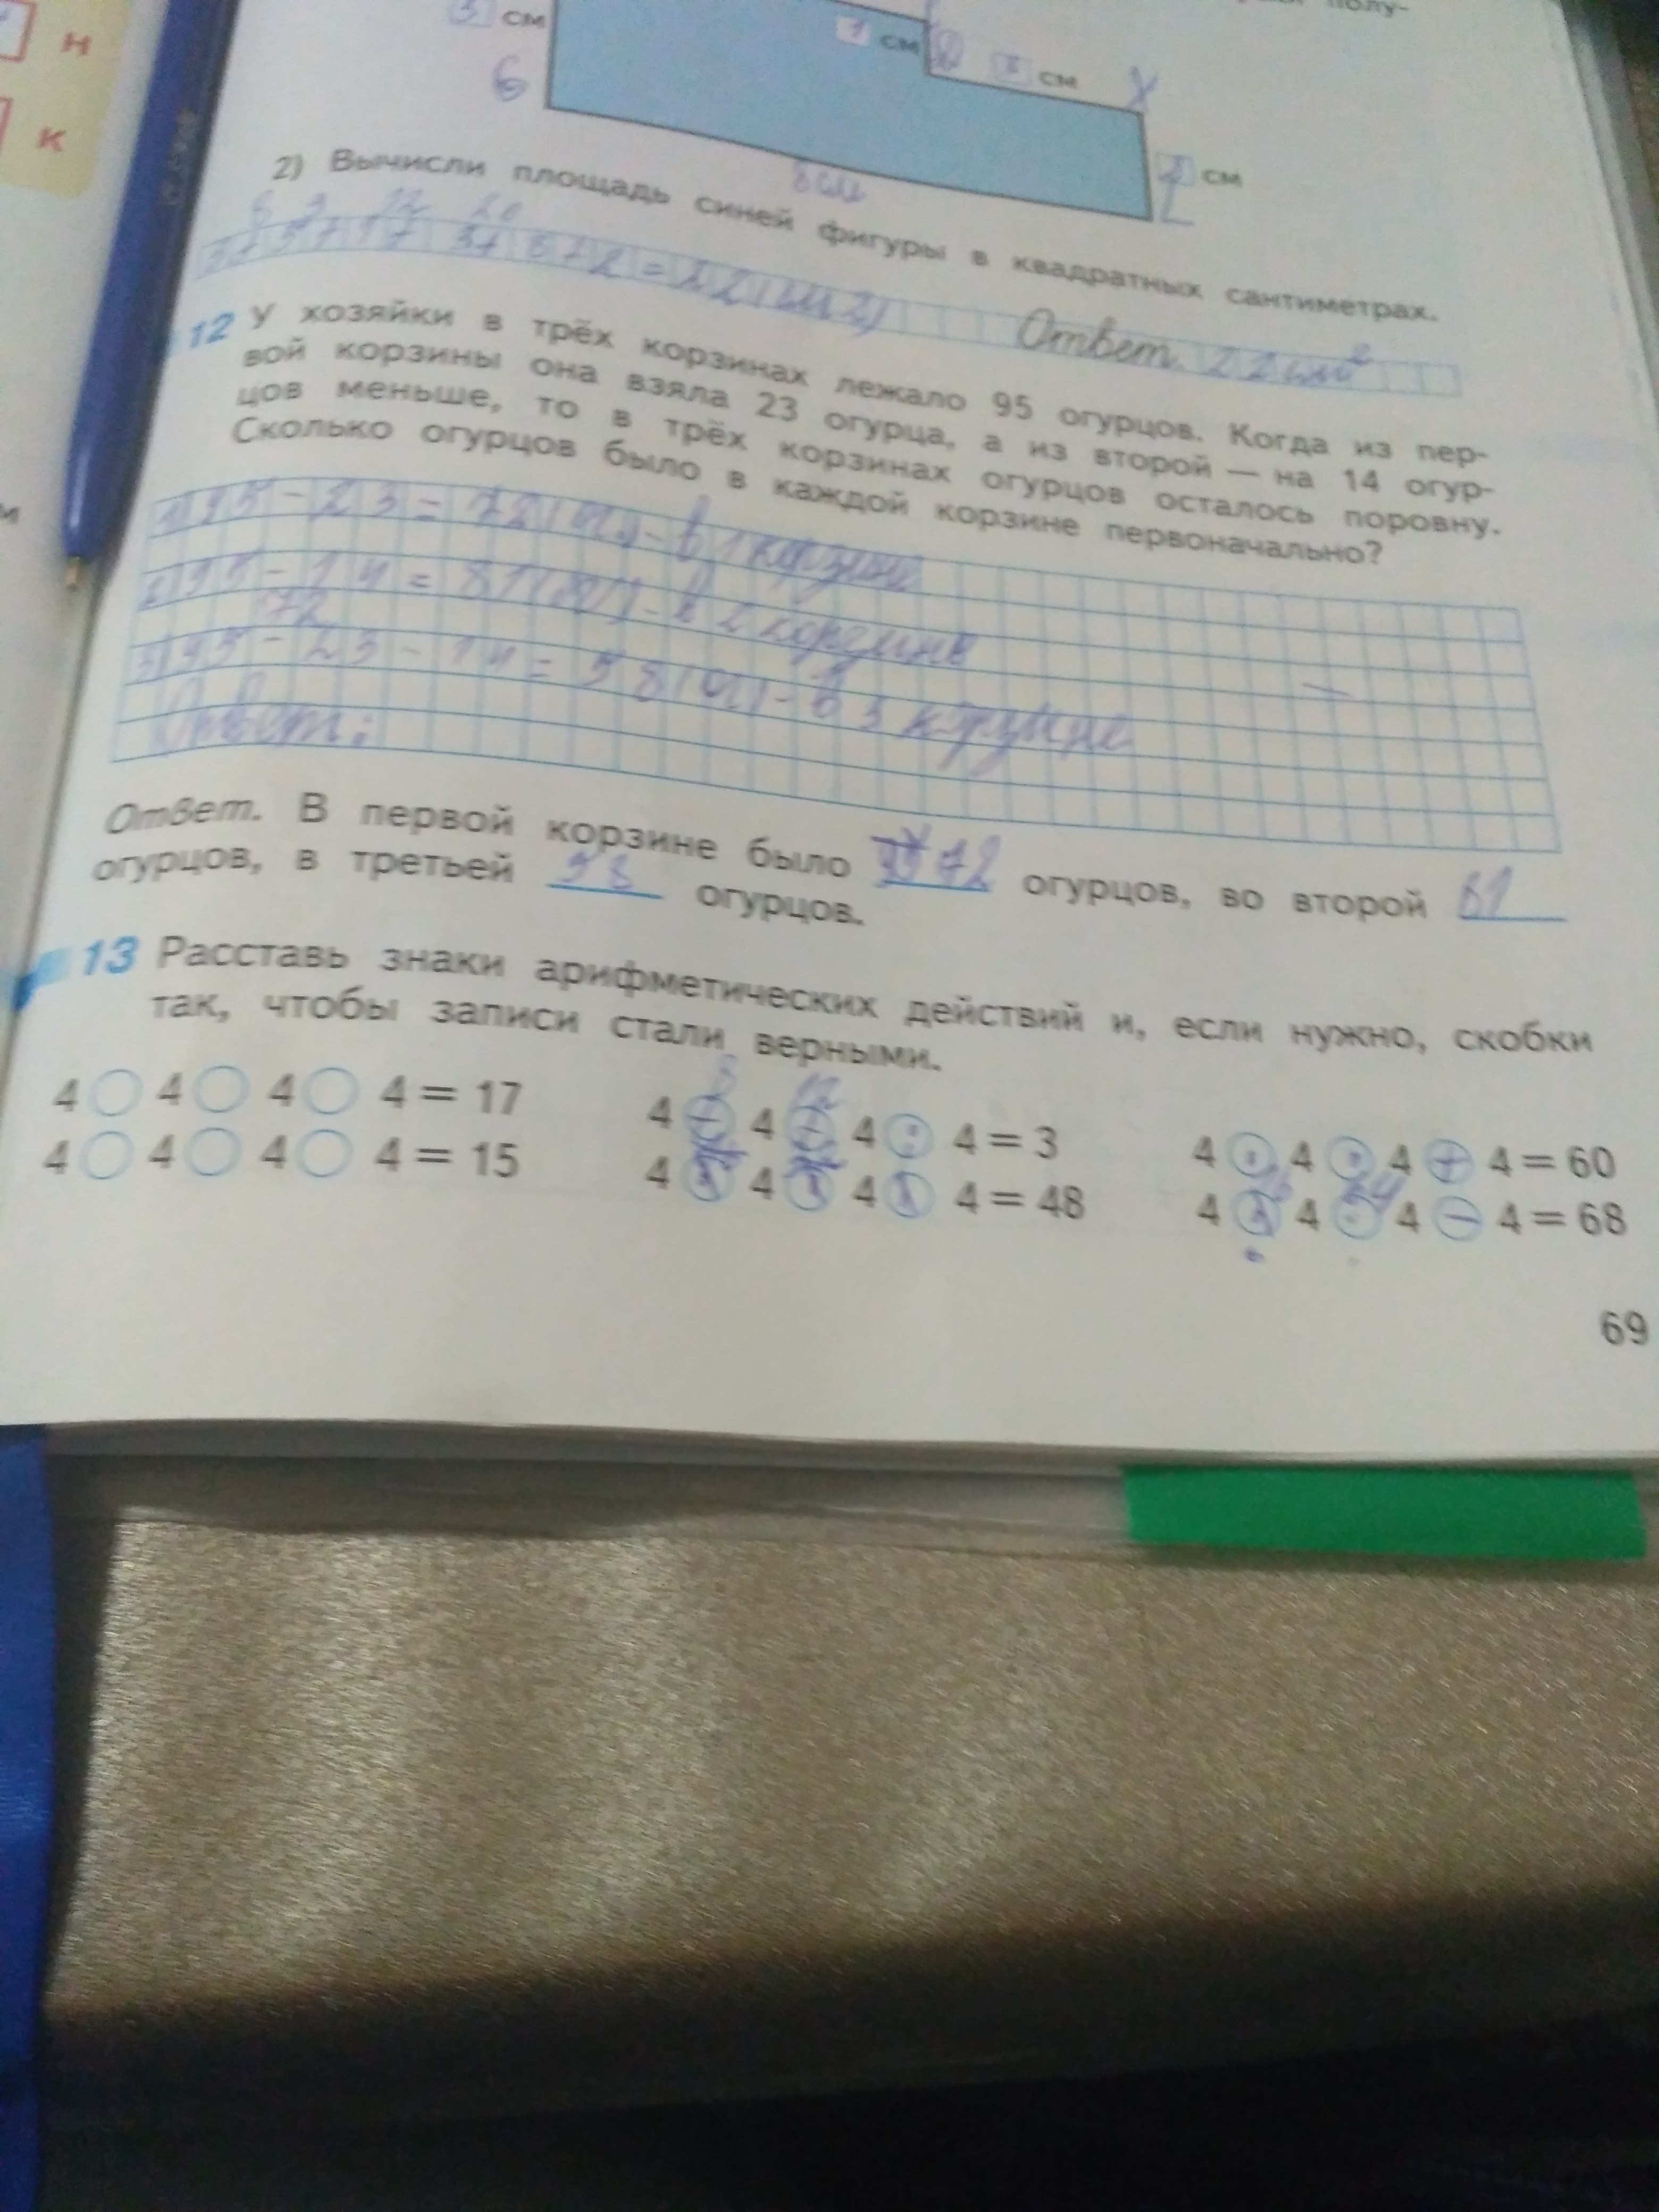 н
полу-
3 см
1 см
см
6
к
8 см
см
2) Вычисли площадь синей фигуры в квадратных сантиметрах.
= 22 (см2) Ответ. 22 см²
12 У хозяйки в трёх корзинах лежало 95 огурцов. Когда из пер-
вой корзины она взяла 23 огурца, а из второй — на 14 огур-
цов меньше, то в трёх корзинах огурцов осталось поровну.
Сколько огурцов было в каждой корзине первоначально?
1) 95 - 23 = 72 (ог.) - в 1 корзине
2) 95 - 14 = 81 (ог.) - в 2 корзине
72
3) 95 - 23 - 14 = 58 (ог.) - в 3 корзине
Ответ:
Ответ. В первой корзине было 72 огурцов, во второй 81
огурцов, в третьей 58 огурцов.
13 Расставь знаки арифметических действий и, если нужно, скобки
так, чтобы записи стали верными.
8 12
4 4 4 4 = 17 4 + 4 + 4 : 4 = 3 4 · 4 · 4 + 4 = 60
4 4 4 4 = 15 4 4 4 4 = 48 4 4 · 4 − 4 = 68
69